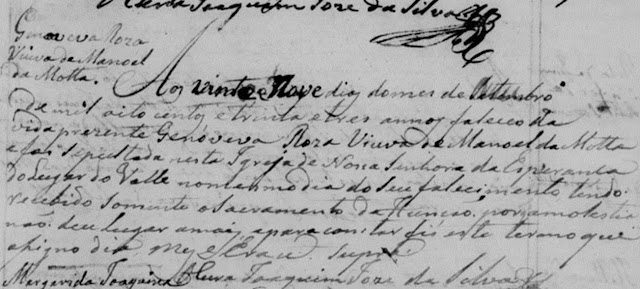 O Cura Joaquim Joze da Silva
Genoveva Roza
Viuva de Manoel
da Motta.
Aos vinte e Nove dias do mes de Setembro
de mil oito centos e trinta e tres annos faleceo da
vida prezente Genoveva Roza Viuva de Manoel da Motta
e foi sepultada nesta Igreja de Nossa Senhora da Esperanca
do Lugar do Valle no mesmo dia do seu falecimento tendo
recebido somente o sacramento da Uncaõ por q a molestia
naõ deu lugar a mais, e para constar fis este termo que
asigno dia mes e Era ut supra
Margarida Joaquina O Cura Joaquim Joze da Silva